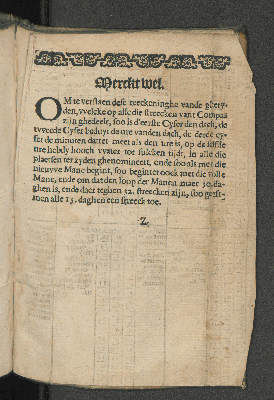 Merckt wel.
OM te verstaen dese reeckeninghe vande ghety-
den, welcke op alle die streecken vant Compas
zijn ghedeelt, soo is d'eerste Cyfer den dach, de
tweede Cyfer beduyt de ure vanden dach, de derde cy-
fer de minuten dattet meer als den ure is, op de selfste
ure hebdy hooch water tot sulcken tijdt, in alle die
plaetsen ter zyden ghenomineert, ende soo als met die
nieuwe Mane begint, soo begintet oock met die volle
Mane, ende om dat den loop der Manen maer 30. da-
ghen is, ende daer teghen 32. streecken zijn, soo
moen alle 15. daghen een streeck toe.
2